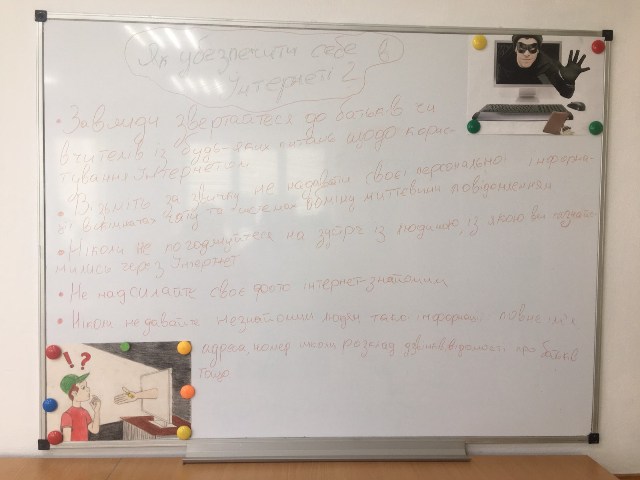 Як убезпечити себе в
Інтернеті?
• Завжди звертайтеся до батьків чи
вчителів із будь-яких питань щодо корис-
тування Інтернетом.
• Візьміть за звичку не надавати своєї персональної інформа-
ції в кімнатах чату та системах обміну миттєвими повідомленнями
• Ніколи не погоджуйтеся на зустріч із людиною, із якою ви познайо-
милися через Інтернет
• Не надсилайте своє фото інтернет-знайомим
• Ніколи не давайте незнайомим людям такої інформації повне ім'я
адреса, номер школи, розклад дзвінків, відомості про батьків
тощо.
!?